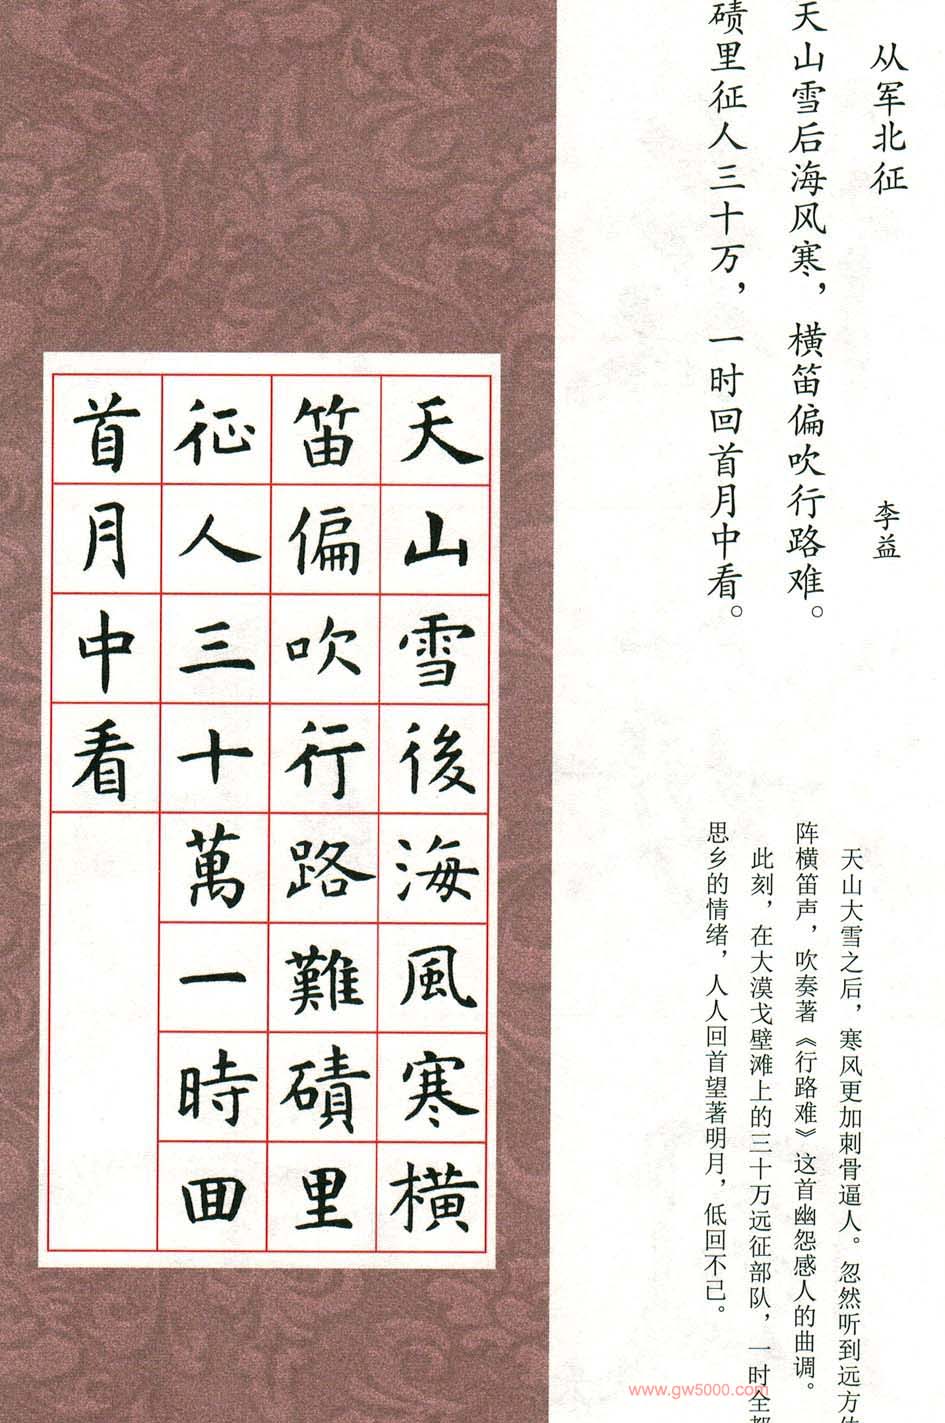 从军北征
李益
天山雪后海风寒，横笛偏吹行路难。
碛里征人三十万，一时回首月中看。
天山大雪之后，寒风更加刺骨逼人。忽然听到远方
阵横笛声，吹奏著《行路难》这首幽怨感人的曲调。
此刻，在大漠戈壁滩上的三十万远征部队，一时全
思乡的情绪，人人回首望著明月，低回不已。
天山雪後海風寒橫
笛偏吹行路難磧里
征人三十萬一時回
首月中看
www.gw5000.com